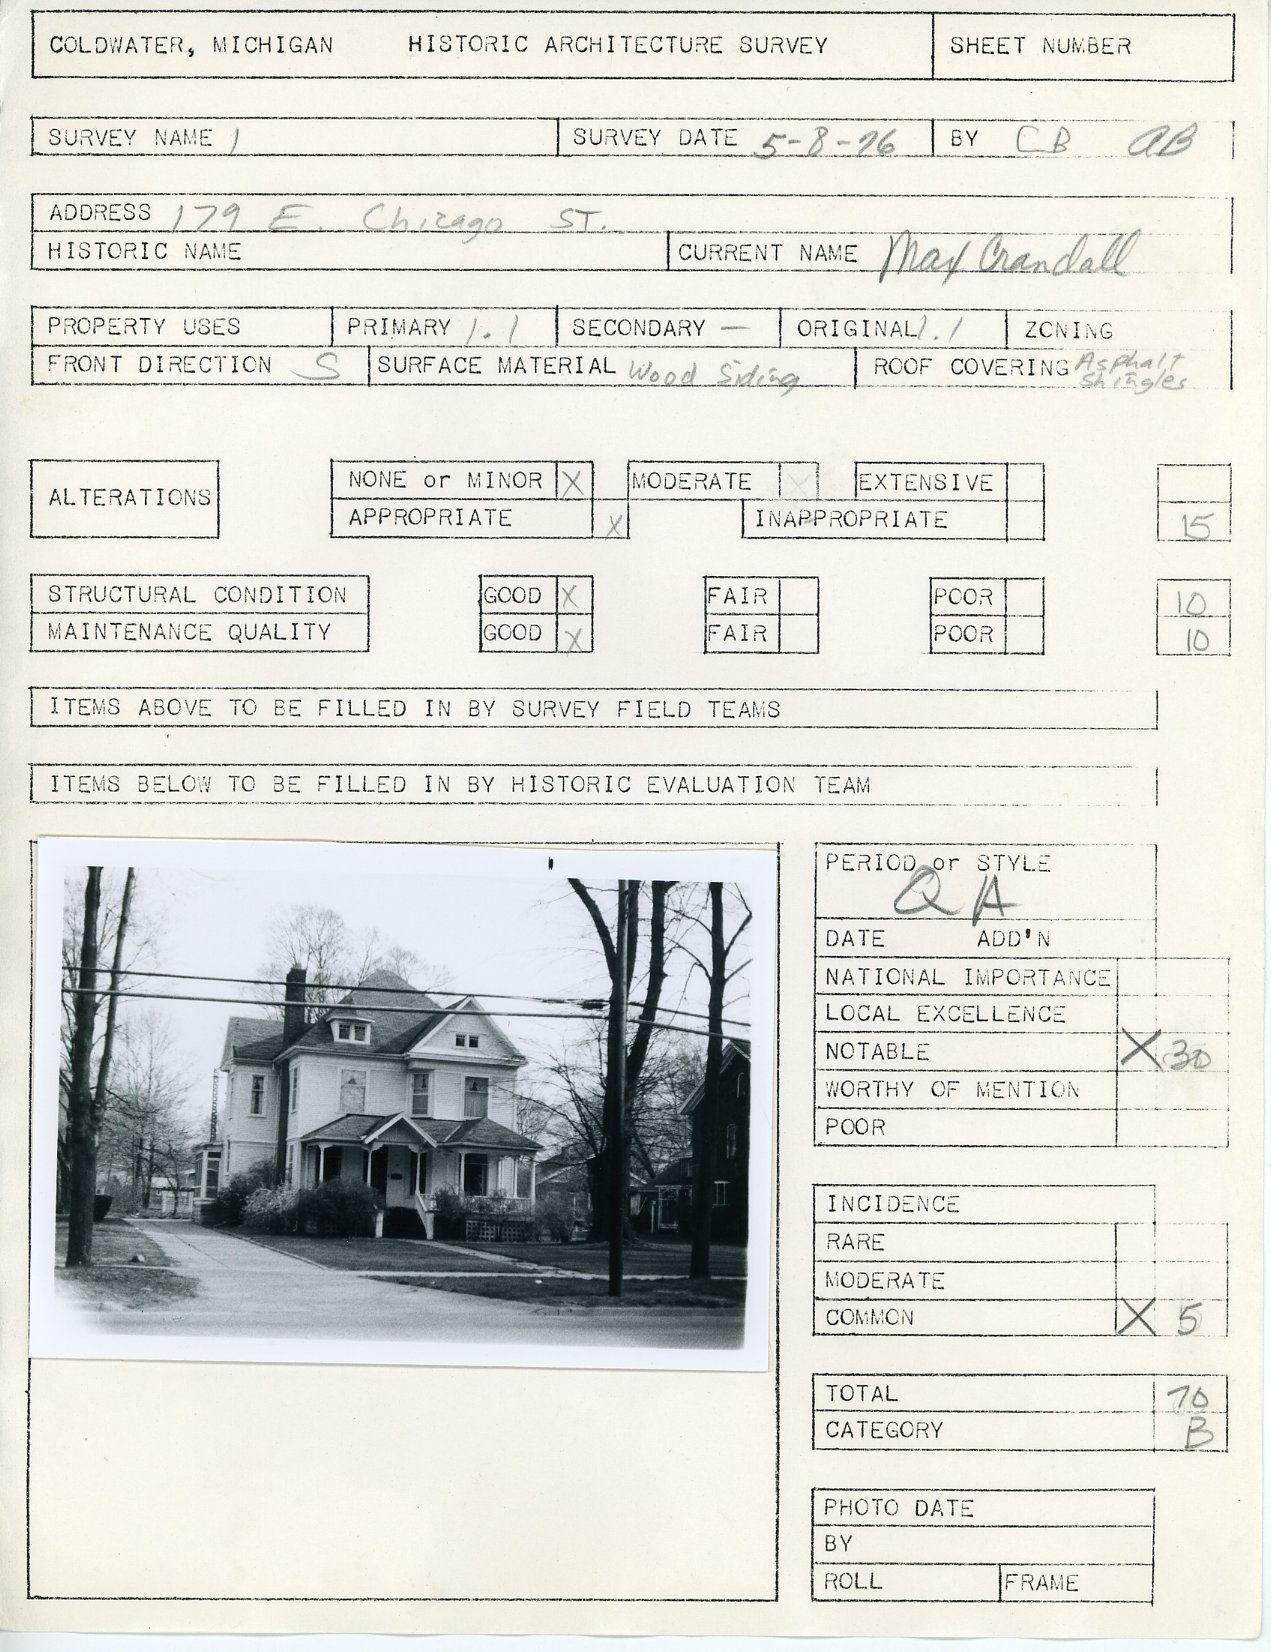 COLDWATER, MICHIGAN HISTORIC ARCHITECTURE SURVEY SHEET NUMBER
SURVEY NAME 1 SURVEY DATE 5-8-76 BY CB AB
ADDRESS 179 E. Chicago ST.
HISTORIC NAME CURRENT NAME Max Crandall
PROPERTY USES PRIMARY 1.1 SECONDARY — ORIGINAL 1.1 ZONING
FRONT DIRECTION S SURFACE MATERIAL Wood Siding ROOF COVERING Asphalt Shingles
ALTERATIONS
NONE or MINOR X MODERATE X EXTENSIVE
APPROPRIATE X INAPPROPRIATE 15
STRUCTURAL CONDITION GOOD X FAIR POOR 10
MAINTENANCE QUALITY GOOD X FAIR POOR 10
ITEMS ABOVE TO BE FILLED IN BY SURVEY FIELD TEAMS
ITEMS BELOW TO BE FILLED IN BY HISTORIC EVALUATION TEAM
PERIOD or STYLE
QA
DATE ADD'N
NATIONAL IMPORTANCE
LOCAL EXCELLENCE
NOTABLE X 30
WORTHY OF MENTION
POOR
INCIDENCE
RARE
MODERATE
COMMON X 5
TOTAL 70
CATEGORY B
PHOTO DATE
BY
ROLL FRAME